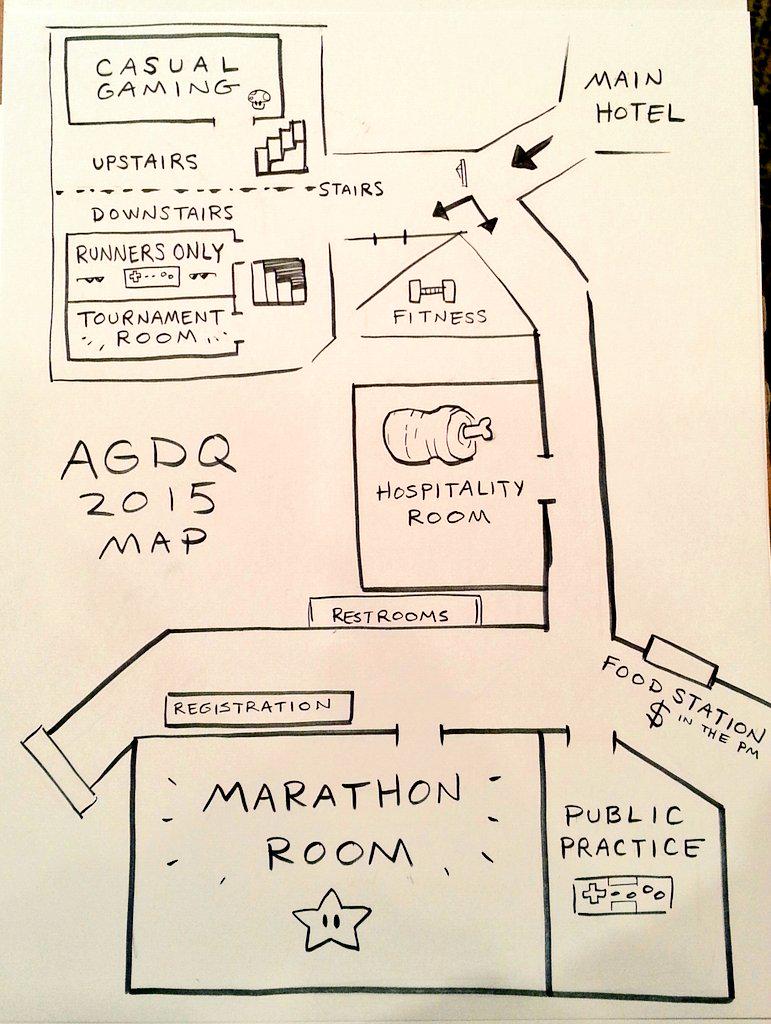 CASUAL
GAMING
MAIN
HOTEL
UPSTAIRS
STAIRS
DOWNSTAIRS
RUNNERS ONLY
TOURNAMENT
ROOM
FITNESS
AGDQ
2015
MAP
HOSPITALITY
ROOM
RESTROOMS
REGISTRATION
FOOD STATION
$ IN THE PM
MARATHON
ROOM
PUBLIC
PRACTICE